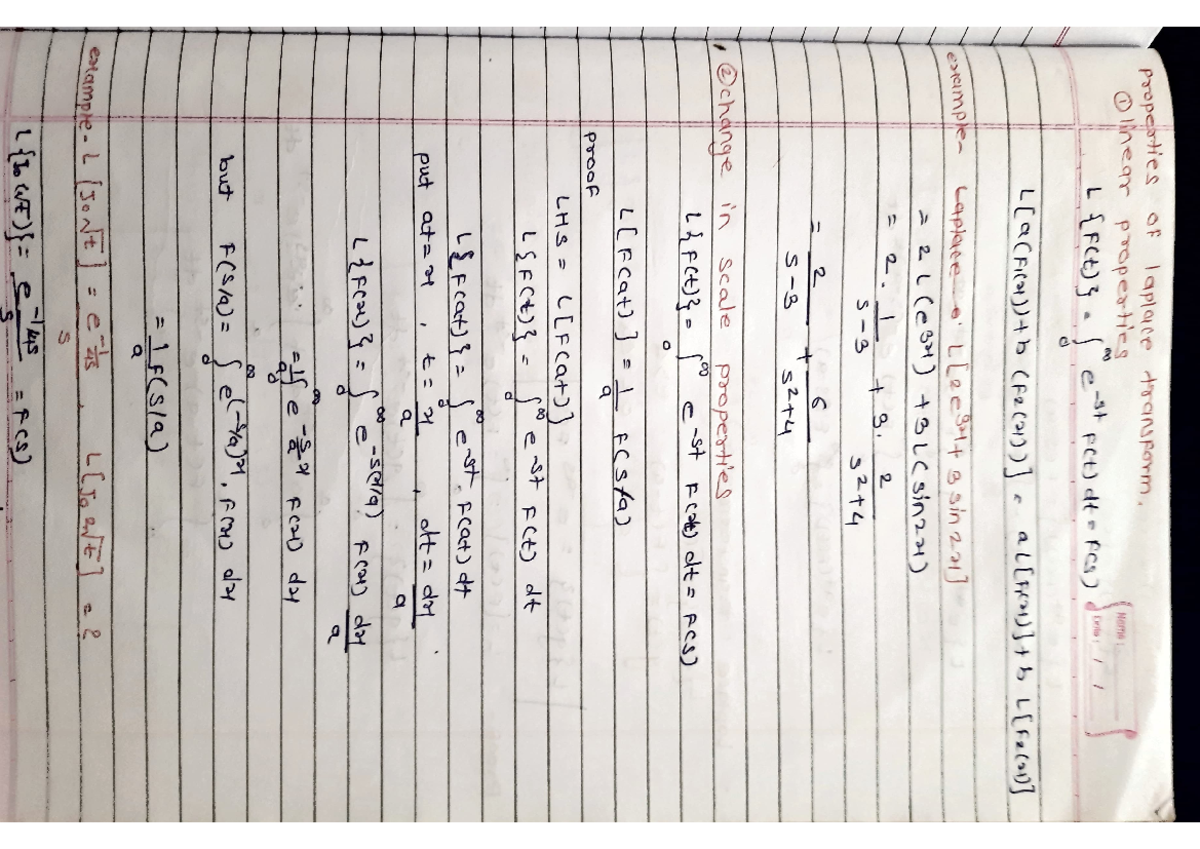 properties of laplace transform.
Name :
Date : / /
① linear properties
L {F(t)} = ∫₀^∞ e^-st F(t) dt = F(s)
L[a(F1(x))+b(F2(x))] = aL[F1(x)]+b L[F2(x)]
example- Laplace L[2e^3x+3sin2x]
= 2L(e^3x) +3L(sin2x)
= 2. 1/(s-3) + 3. 2/(s²+4)
= 2/(s-3) + 6/(s²+4)
② change in scale properties
L{F(t)} = ∫₀^∞ e^-st F(t) dt = F(s)
L[F(at)] = 1/a F(s/a)
proof
LHS = L[F(at)]
L{F(t)} = ∫₀^∞ e^-st F(t) dt
L{F(at)} = ∫₀^∞ e^-st. F(at) dt
put at=x , t=x/a , dt=dx/a
L{F(x)} = ∫₀^∞ e^-s(x/a) F(x) dx/a
= 1/a ∫₀^∞ e^-(s/a)x F(x) dx
but F(s/a) = ∫₀^∞ e^(-s/a)x. F(x) dx
= 1/a F(s/a)
example- L[J0√t] = e^(-1/4s)/s L[J0 2√t] = ?
L{J0(√t)} = e^(-1/4s)/s = F(s)